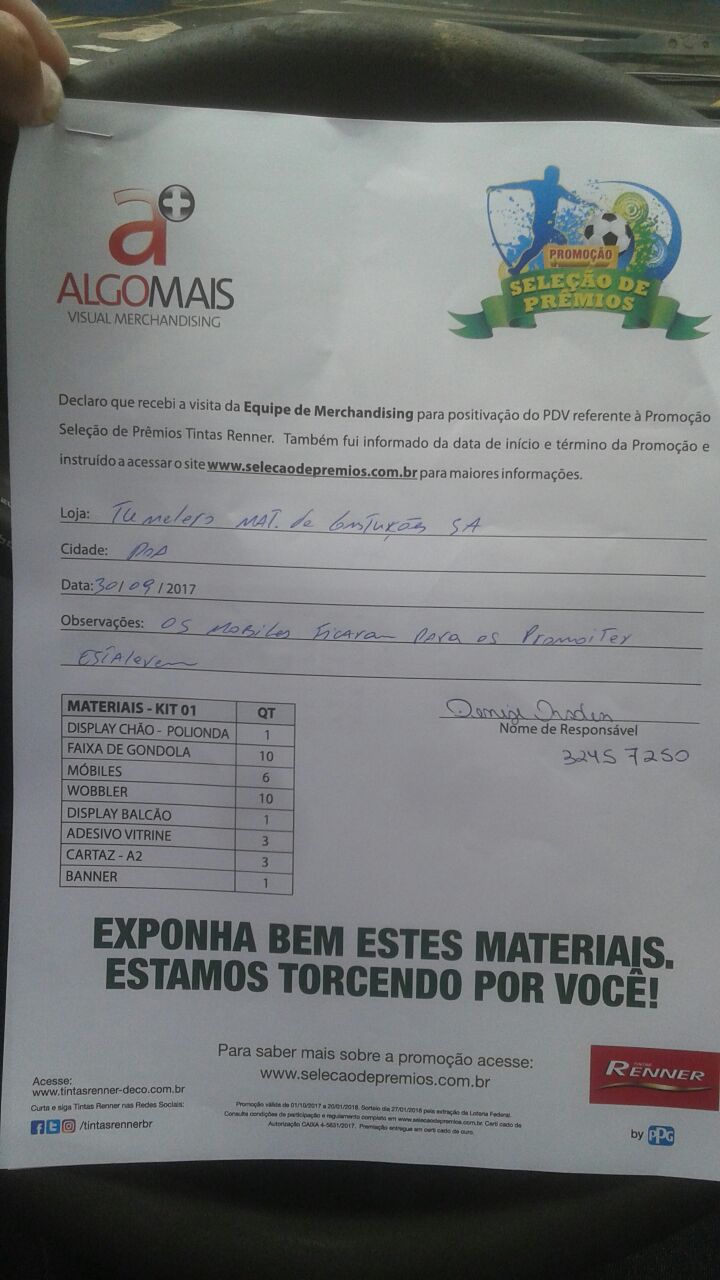 a+
ALGOMAIS
VISUAL MERCHANDISING
PROMOÇÃO
SELEÇÃO DE
PRÊMIOS
Declaro que recebi a visita da Equipe de Merchandising para positivação do PDV referente à Promoção
Seleção de Prêmios Tintas Renner. Também fui informado da data de início e término da Promoção e
instruído a acessar o site www.selecaodepremios.com.br para maiores informações.
Loja: Tumelero MAT. de Constuções SA
Cidade: POA
Data: 30/09/2017
Observações: OS MOBILES FICARAM PARA OS PROMOITER
ESTALEREM
Nome de Responsável
3245 7250
MATERIAIS - KIT 01 QT
DISPLAY CHÃO - POLIONDA 1
FAIXA DE GONDOLA 10
MÓBILES 6
WOBBLER 10
DISPLAY BALCÃO 1
ADESIVO VITRINE 3
CARTAZ - A2 3
BANNER 1
EXPONHA BEM ESTES MATERIAIS.
ESTAMOS TORCENDO POR VOCÊ!
Para saber mais sobre a promoção acesse:
www.selecaodepremios.com.br
Acesse:
www.tintasrenner-deco.com.br
Curta e siga Tintas Renner nas Redes Sociais:
/tintasrennerbr
Promoção válida de 01/10/2017 a 20/01/2018. Sorteio dia 27/01/2018 pela extração da Loteria Federal.
Consulte condições de participação e regulamento completo em www.selecaodepremios.com.br. Certi cado de
Autorização CAIXA 4-5631/2017. Premiação entregue em certi cado de ouro.
TINTAS
RENNER
by PPG